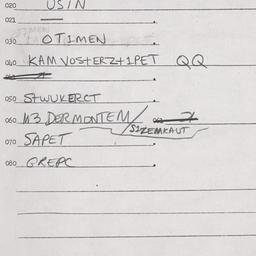 020 USIN
021
030 OTIMEN
040 KAMVOSTERZTIPET QQ
050 STWUKERCT
060 M3 DERMONTEM/
/SIZEMKAUT
070 SAPET
080 GREPC